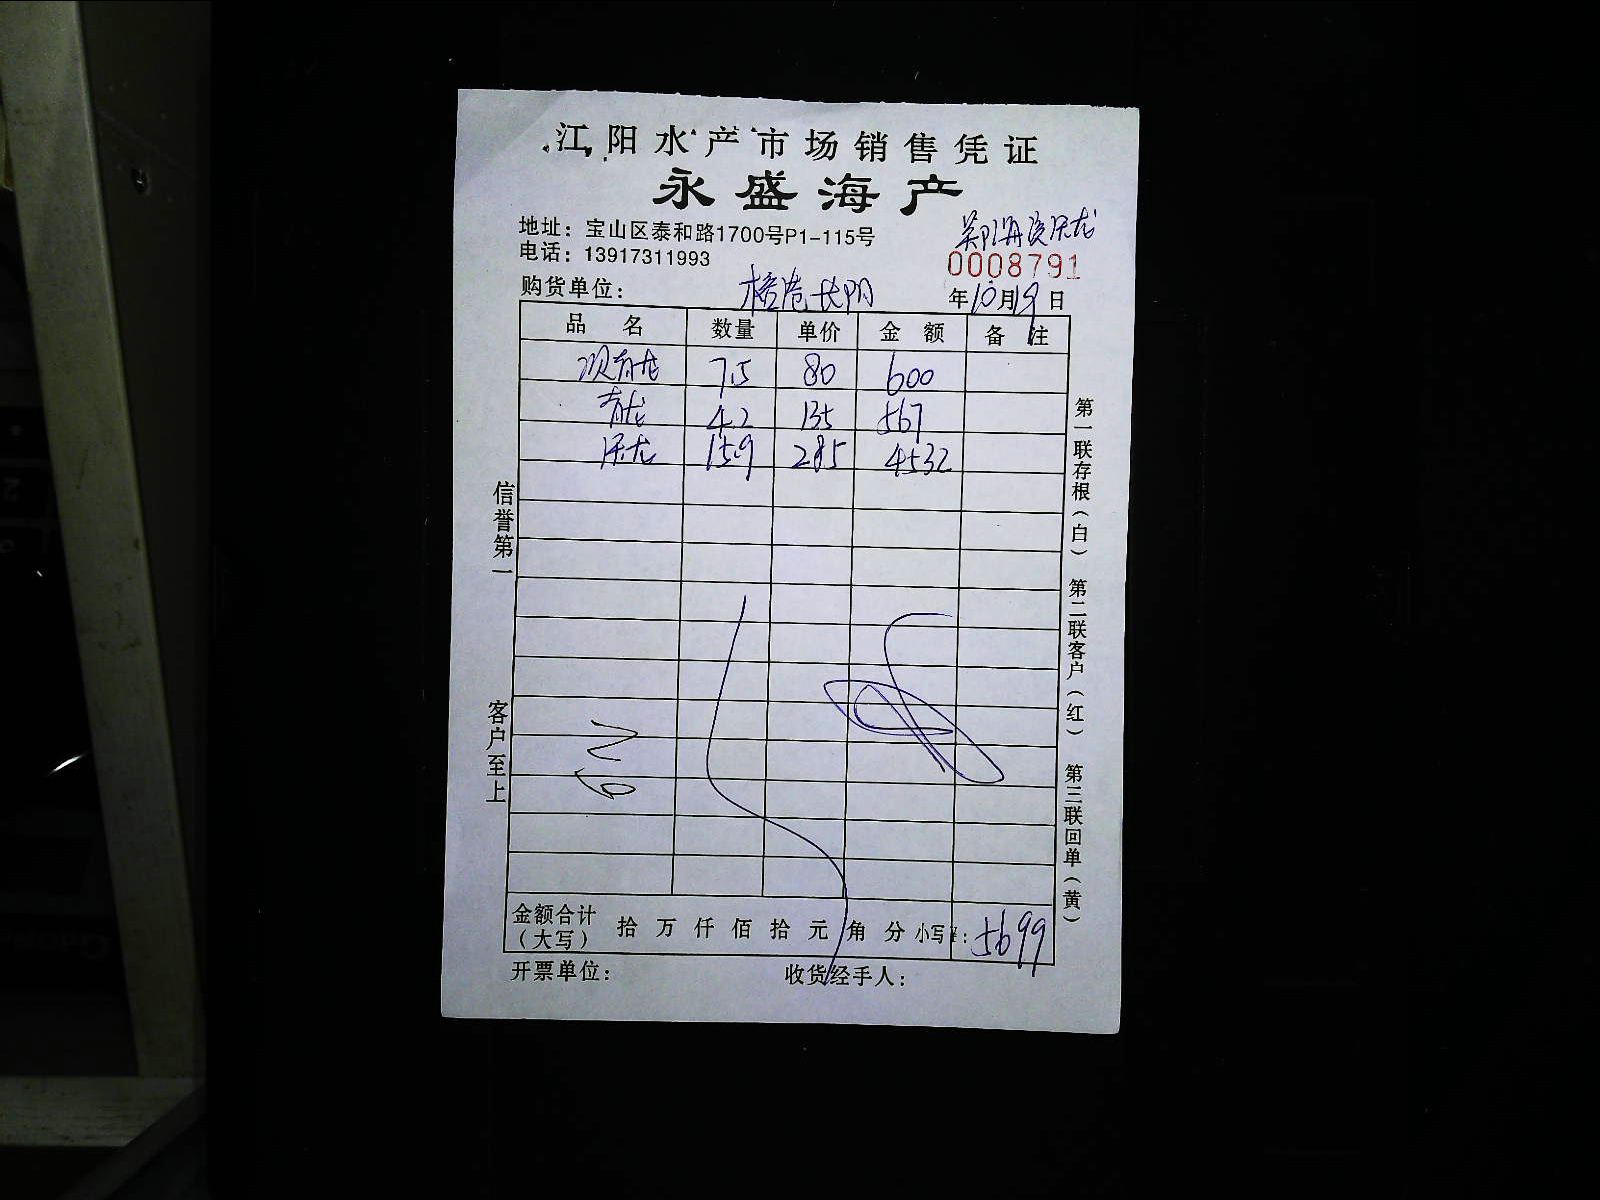 江阳水产市场销售凭证
永盛海产
地址：宝山区泰和路1700号P1-115号
电话：13917311993
0008791
购货单位： 年10月19日
品名 数量 单价 金额 备注
7.5 80 600
青龙 4.2 135 567
15.9 285 4532
信誉第一
客户至上
第一联存根（白） 第二联客户（红） 第三联回单（黄）
金额合计（大写） 拾 万 仟 佰 拾 元 角 分 小写¥：5699
开票单位： 收货经手人：